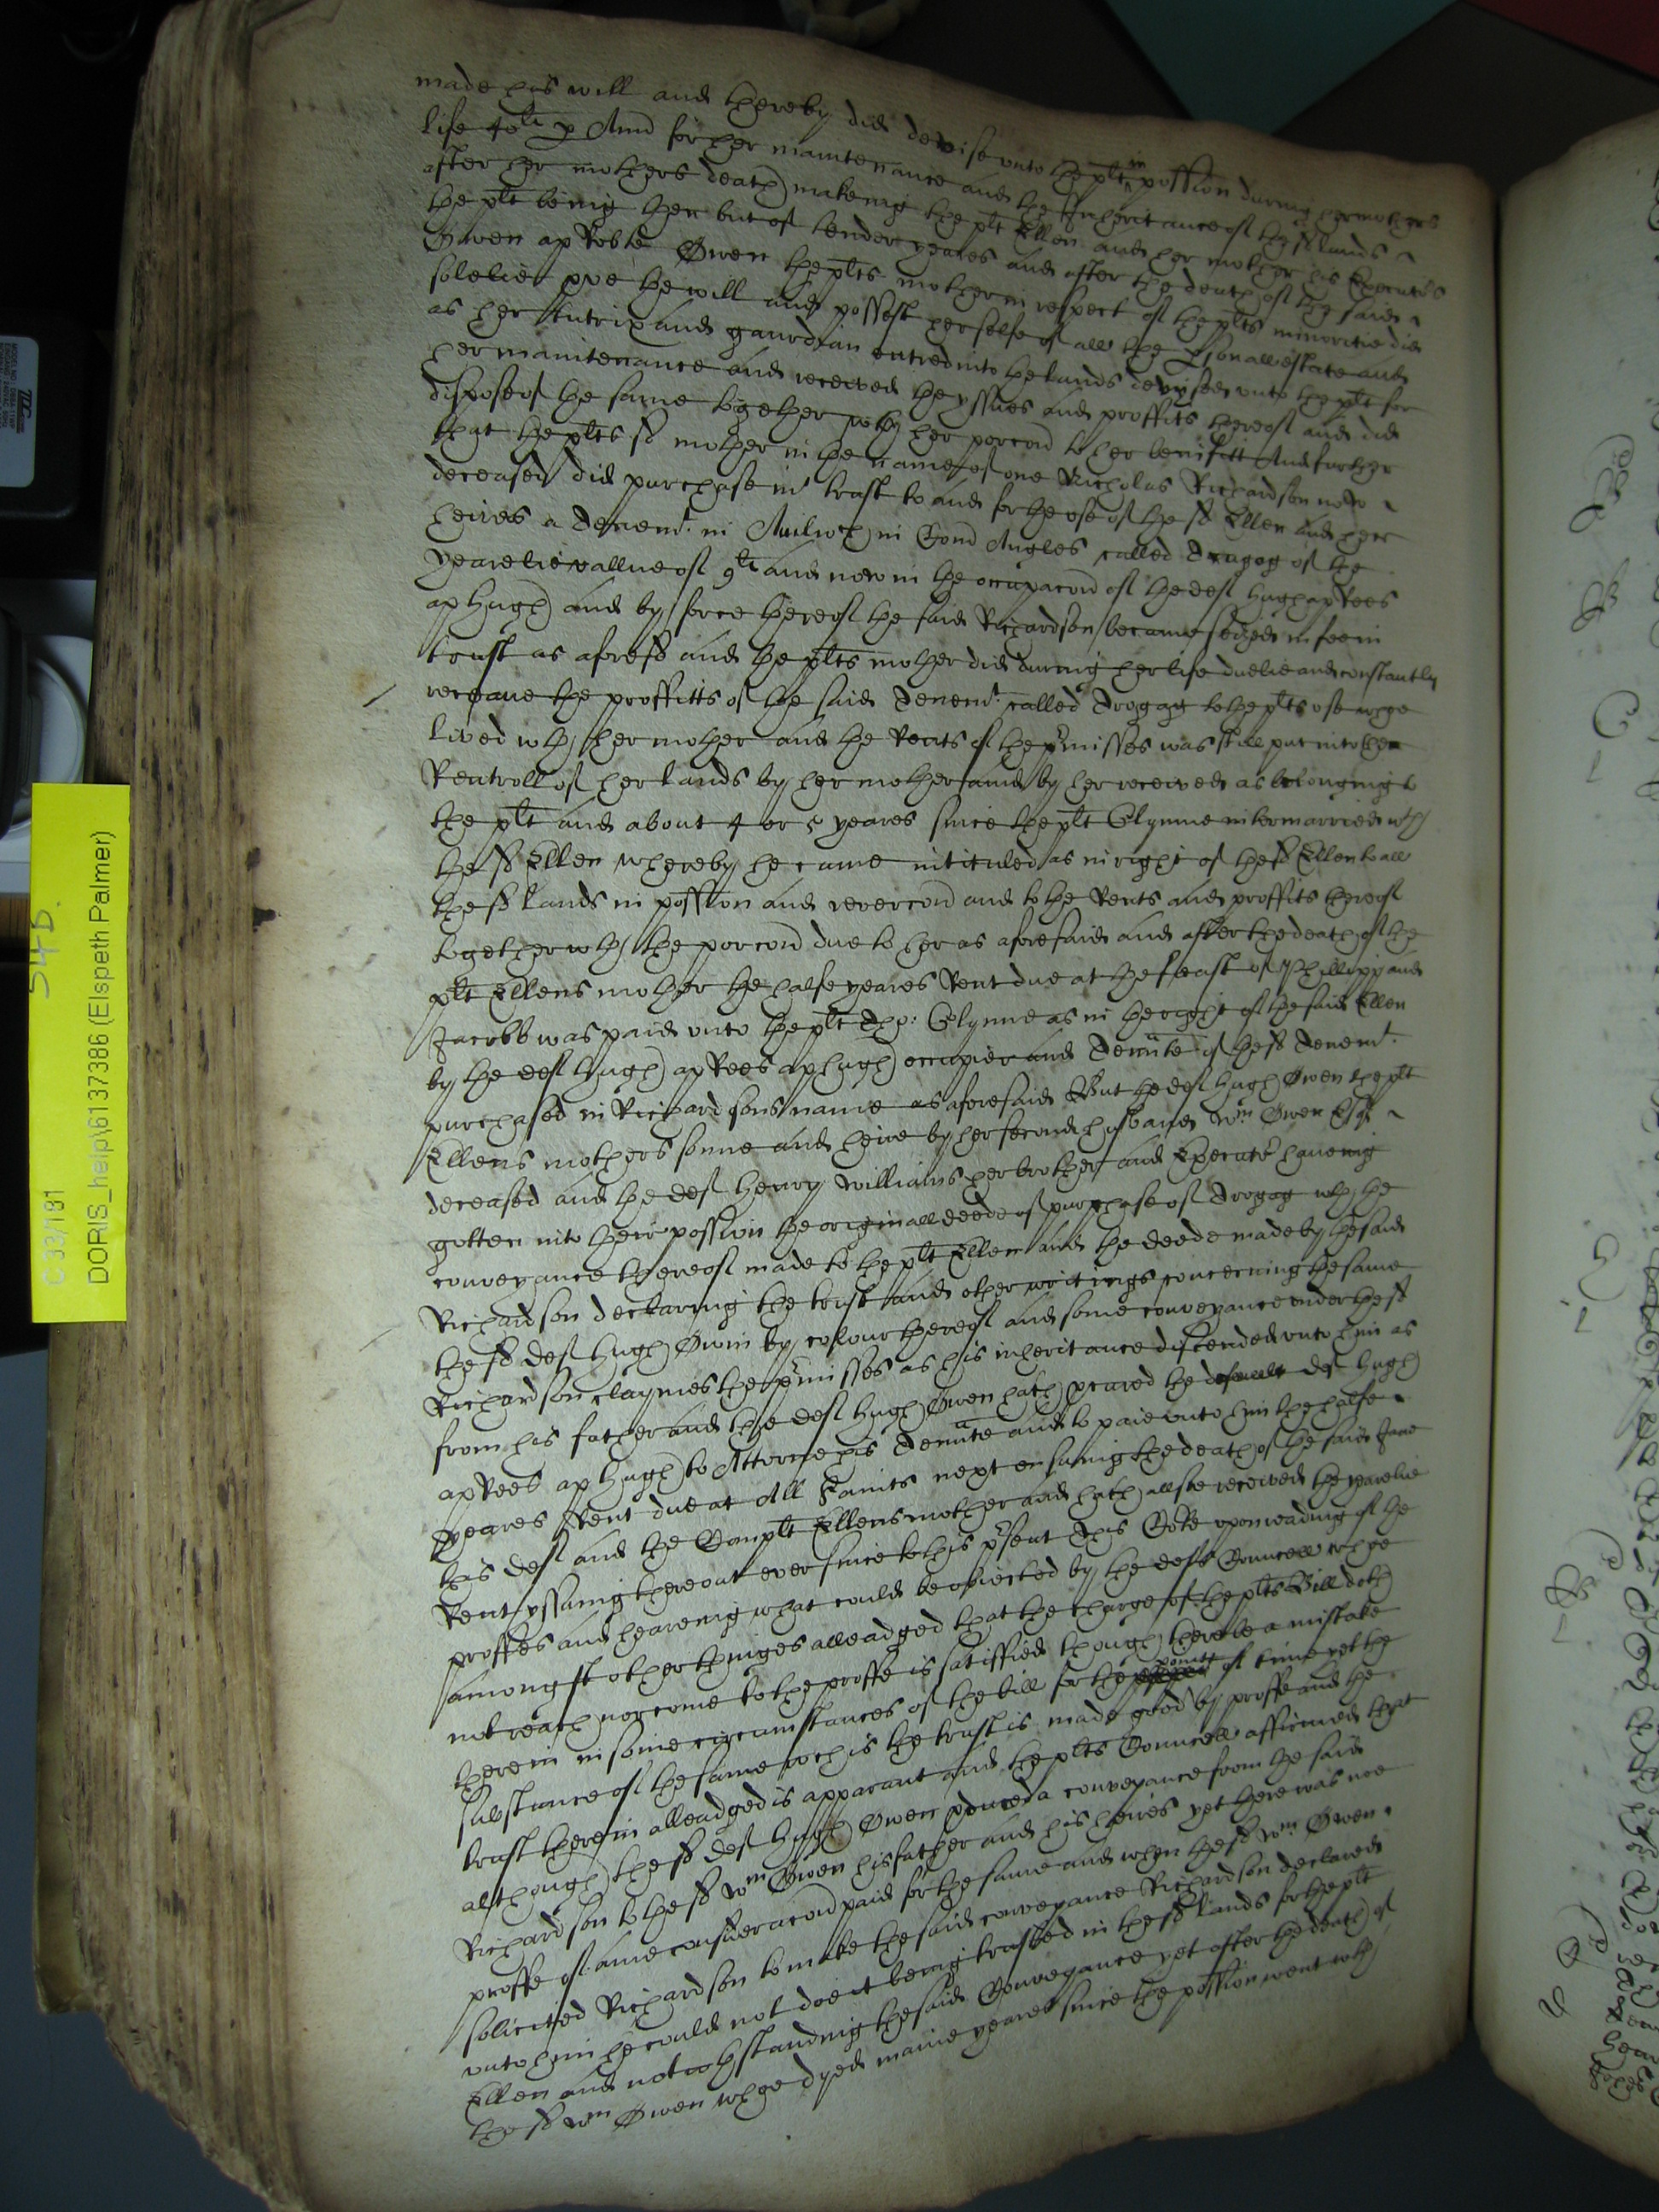 made his will and thereby did devise unto the plt in possion during her mothers
life 40li p Ann for her maintenance and the Inheritance of the sd lands
after her mothers death makeing the plt Ellen and her mother his Executors
the plt being then but of tender yeares and after the death of the said
Owen ap Robte Owen the plts mother in respect of the plts minoritie did
solelie prve the will and possest herselfe of all the psonall estate and
as her tutrix and gaurdian entred into the lands devysed unto the plt for
her maintenance and received the yssues and proffits thereof and did
dispose of the same together wth her porcon to her benifitt And further
that the plts sd mother in the name of one Nicholas Richardson now
deceased did purchase in trust to and for the use of the sd Ellen and her
heires a Tenemt. in in Com Angles called Tragog of the
yearelie vallue of 9li and now in the occupacon of the deft Hugh ap Rees
ap Hugh and by force thereof the said Richardson became seized in fee in
trust as aforesd and the plts mother did during her life duelie and constantly
receave the proffitts of the said Tenemt. called Trogag to the plts use whoe
lived wth her mother and the Rents of the pmisses was still put into the
Rentroll of her lands by her mother and by her received as belonging to
the plt and about 4 or 5 yeares since the plt Glynne intermarried wth
the sd Ellen whereby he came intituled as in right of the sd Ellen to all
the sd lands in possion and revercon and to the Rents and proffits thereof
together wth the porcon due to her as aforesaid and after the death of the
plt Ellens mother the halfe yeares Rent due at the feast of Phillipp and
Jacobb was paid unto the plt Tho: Glynne as in the right of the said Ellen
by the deft Hugh ap Rees ap Hugh occupier and Tennte of the sd Tenemt.
purchased in Richardsons name as aforesaid But the deft Hugh Owen the plt
Ellens mothers sonne and heire by her second husband Wm Owen Esqr
deceased and the deft Henry Williams her brother and Executr haveing
gotten into their possion the originall deede of purchase of Trogag wth the
conveyance thereof made to the plt Ellen and the deede made by the said
Richardson declaring the trust and other writings concerning the same
the sd deft Hugh Owin by colour thereof and some conveyance under the sd
Richardson claymes the pmisses as his inheritance discended unto him as
from his father and the deft Hugh Owen hath pcured the deft Hugh
ap Rees ap Hugh to Attorne his Tennte and to paie unto him the halfe
yeares Rent due at All Saints next ensuing the death of the said Jane
this deft and the Complt Ellens mother and hath allsoe received the yearelie
Rent yssuing thereout ever since to this psent This Corte upon reading of the
proffes and heareing what could be objected by the defts Councell whoe
amongst other thinges alleadged that the charge of the plts Bill doth
not reach nor come to the proffe is satisfied though there be a mistake
therein in some circumstances of the bill for the pointt of time yet the
substance of the same wch is the trust is made good by proffe and the
trust therein alleadged is apparant and the plts Councell affirmed that
although the sd deft Hugh Owen pduced a conveyance from the said
Richardson to the sd Wm Owen his father and his heires yet there was noe
proffe of anie consideracon paid for the same and when the sd Wm Owen
solicited Richardson to make the said conveyance Richardson declared
unto him he could not doe it being trusted in the sd lands for the plt
Ellen and notwthstanding the said Conveyance yet after the death of
the sd Wm Owen whoe dyed manie yeares since the possion went wth
C 33/191 54D.
DORIS_help\6137386 (Elspeth Palmer)